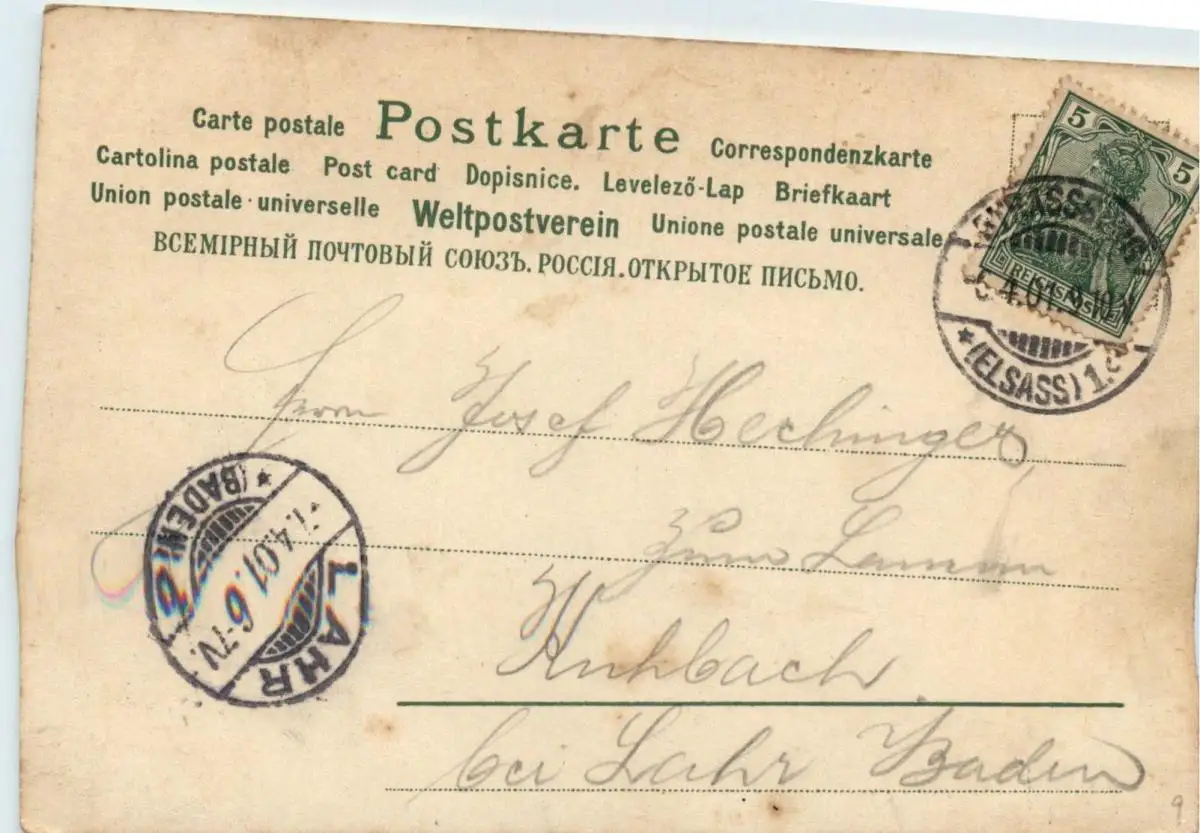 Carte postale Postkarte Correspondenzkarte
Cartolina postale Post card Dopisnice. Levelező-Lap Briefkaart
Union postale universelle Weltpostverein Unione postale universale
ВСЕМІРНЫЙ ПОЧТОВЫЙ СОЮЗЪ. РОССІЯ. ОТКРЫТОЕ ПИСЬМО.
5 5
REICHSPOST
STRASSBURG
6.4.01. 9-10 V
* (ELSASS) 1.
Herrn Josef Hechinger
zum
Kuhbach
bei Lahr Baden
LAHR
7.4.01. 6-7V.
* (BADEN)
9